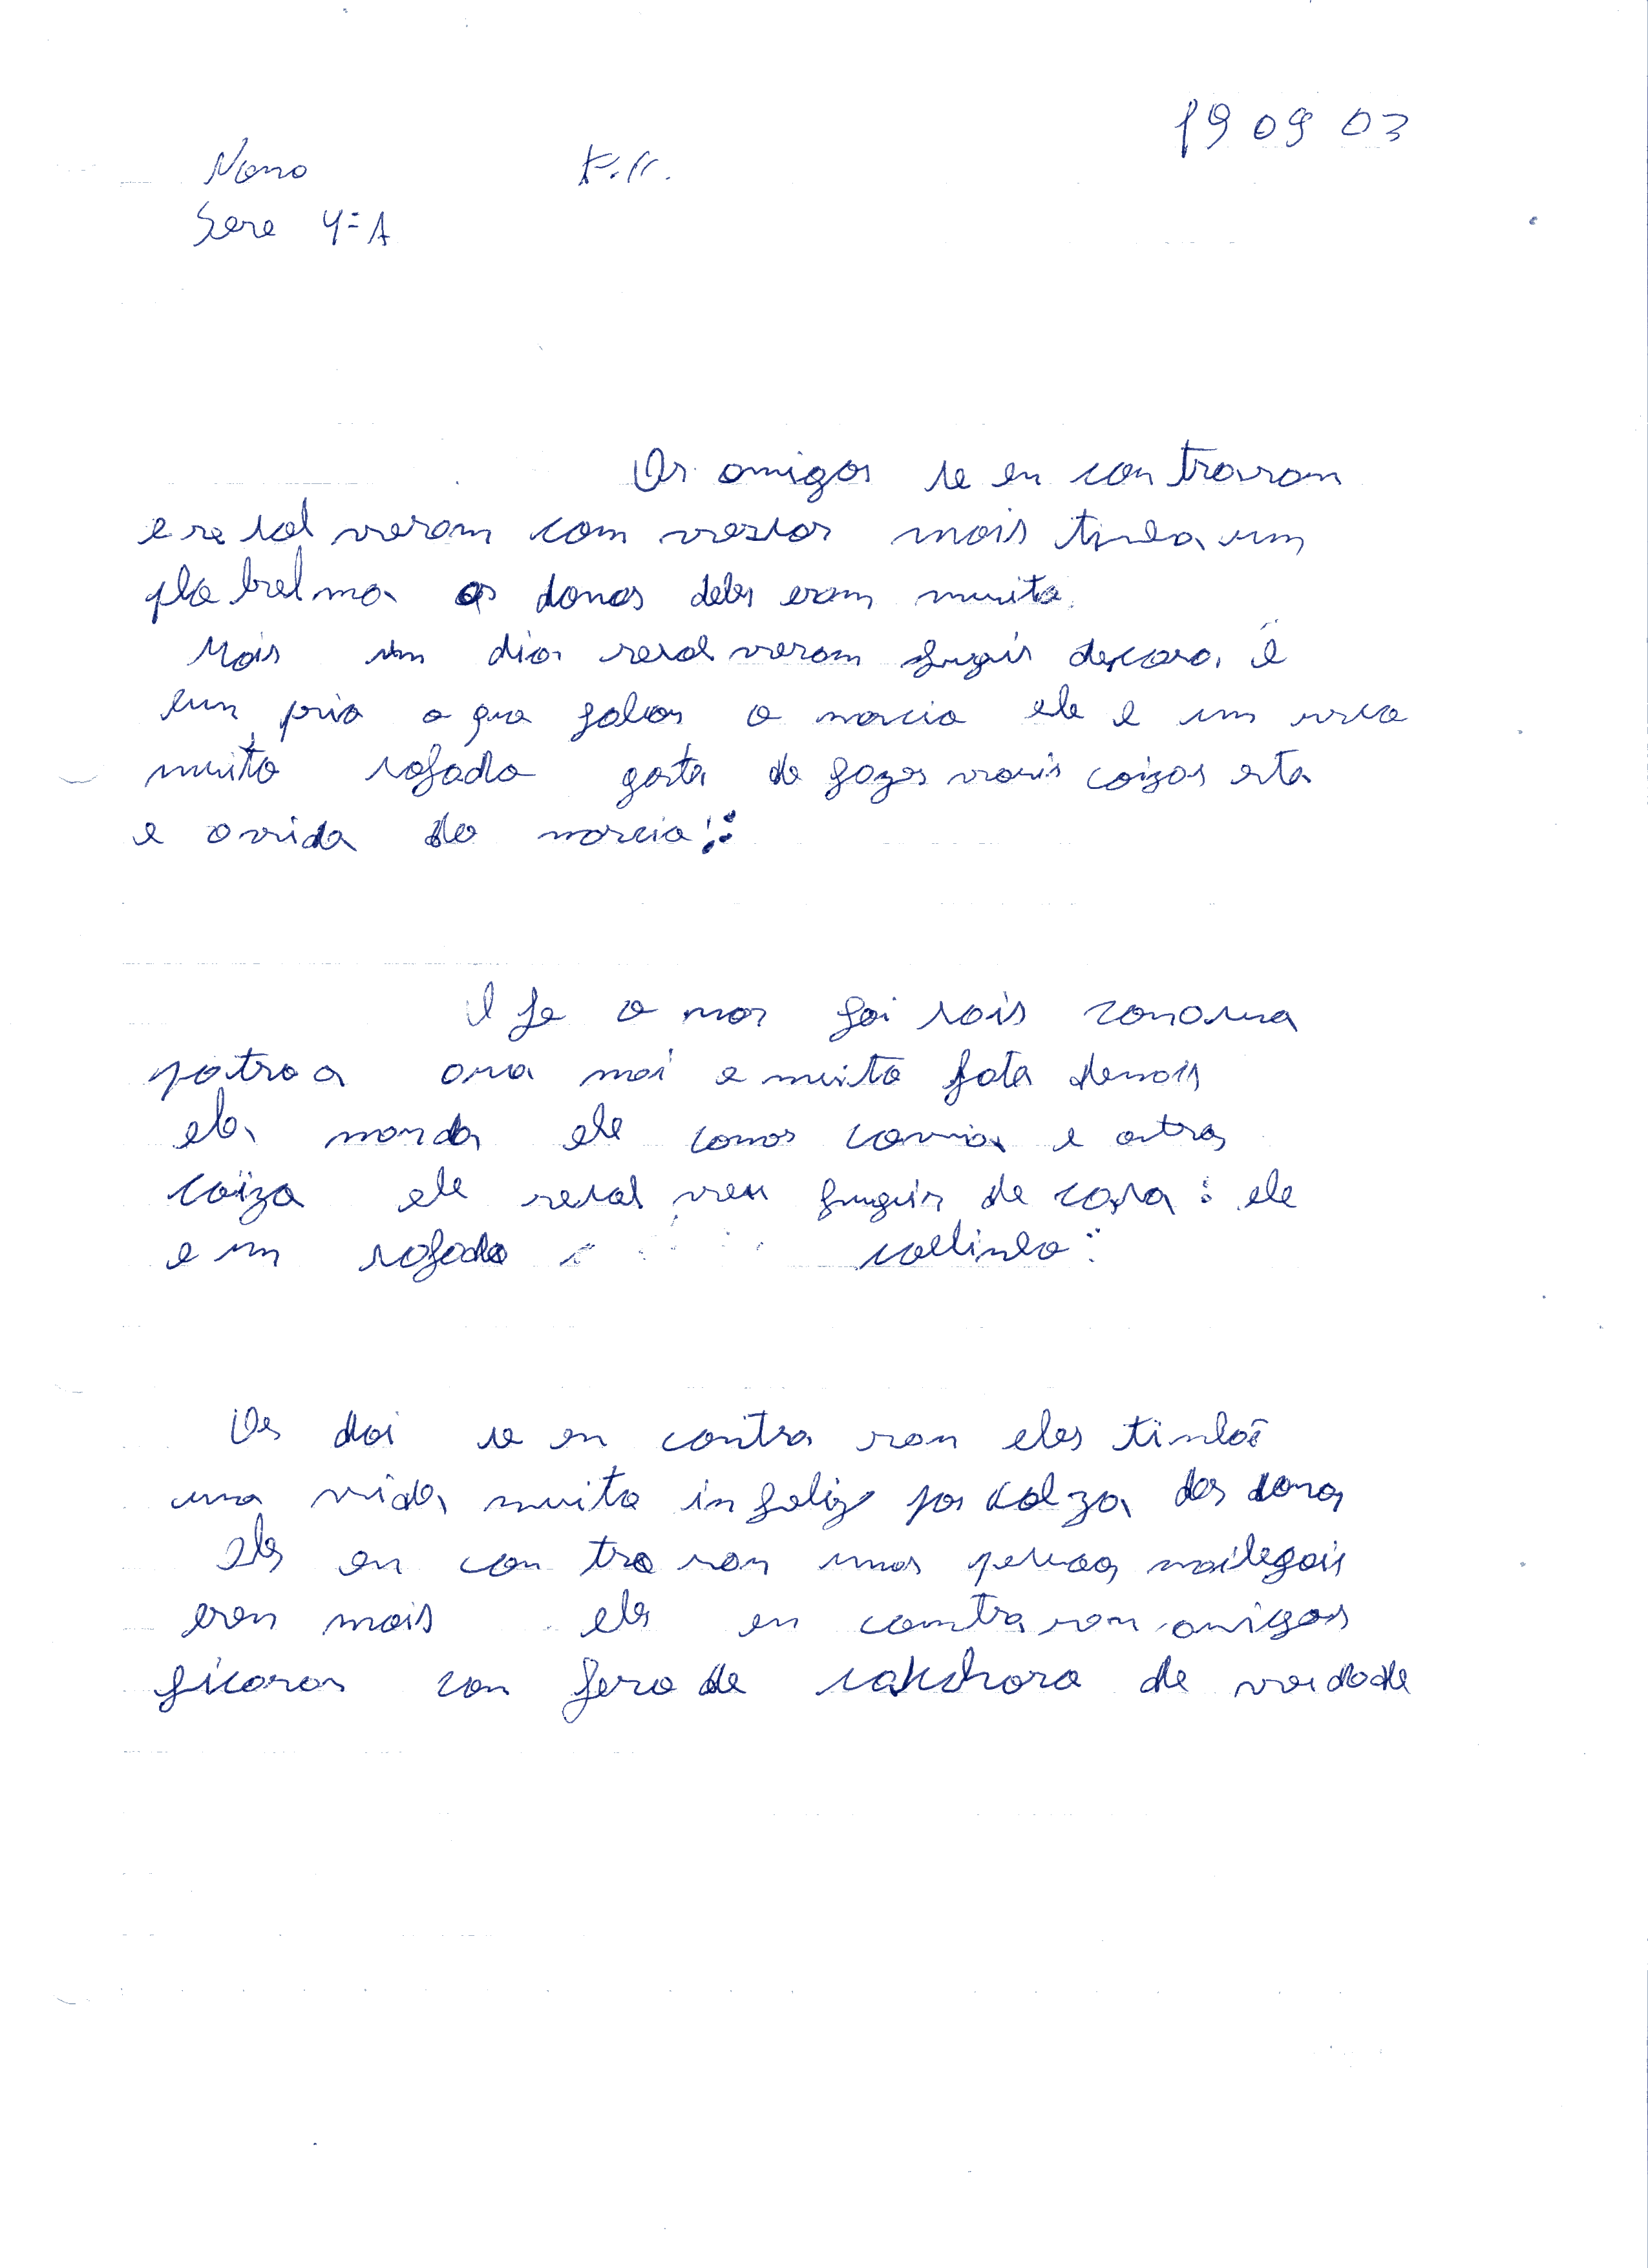 19 09 03
Nome K.K.
Sere 4ª A
Os amigos se en con traram
e re sol veram com versar mais tinha um
plo brelma os donos deles eram muito
Mais um dia resol veram fugir descasa, e
muito safado gosta de fazer varis coizas esta
e a vida do marcio
patroa ma mai e muito fata demais
ela manda ele comos comia e outra
coiza ele resol veu fuguir de casa : ele
e um safado callinho :
Os doi se en contra ram eles tinhão
uma vida muito in feliz por calza dos dono
Eles en con tra ram umas pesoas mailegais
eram mais eles en contra ram amigos
ficaram con fero de cakchora de verdade